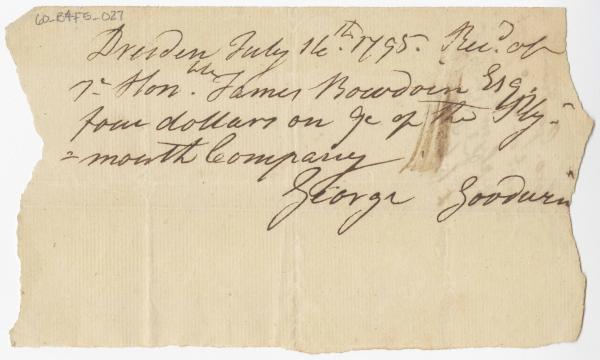 60_B4F5_027
Dresden July 16th. 1795. Rec.d of
ye Honble. James Bowdoin Esqr.
four dollars on %c of the Ply-
=mouth Company
George Goodwin